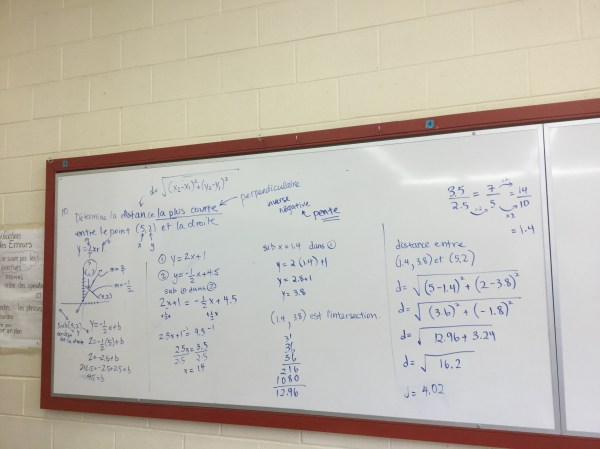 d= √(x₂-x₁)²+(y₂-y₁)²
10. Détermine la distance la plus courte
perpendiculaire
entre le point (5,2) et la droite
x y
y=2x+1
m=-1/2
(5,2)
Sub (5,2)
y=-1/2x+b
2=-1/2(5)+b
2=-2.5+b
2+2.5=-2.5+2.5+b
4.5=b
① y=2x+1
② y=-1/2x+4.5
sub ① dans ②
2x+1=-1/2x+4.5
2.5x+1-1=4.5-1
2.5x=3.5
2.5 2.5
x=1.4
inverse
négative
pente
sub x=1.4 dans ①
y=2(1.4)+1
y=2.8+1
y=3.8
(1.4, 3.8) est l'intersection.
36
36
216
1080
12.96
3.5/2.5 = 7/5 = 14/10
×2
×2
=1.4
distance entre
(1.4, 3.8) et (5,2)
d= √(5-1.4)²+(2-3.8)²
d= √(3.6)²+(-1.8)²
d= √12.96+3.24
d= √16.2
d= 4.02
des Erreurs